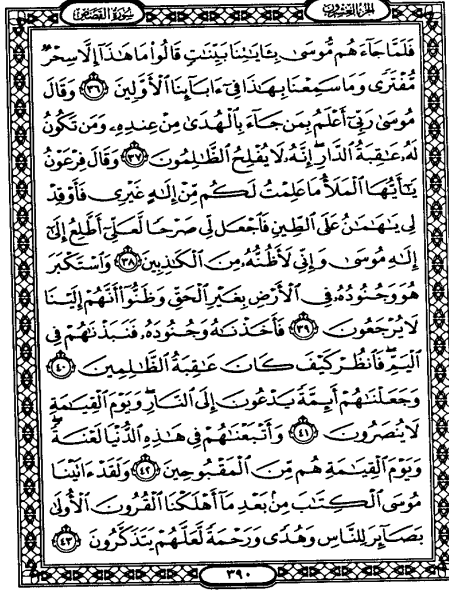 سُورَةُ القَصَصِ
الجُزْءُ العِشْرُونَ
فَلَمَّا جَآءَهُم مُّوسَىٰ بِـَٔايَـٰتِنَا بَيِّنَـٰتٍ قَالُوا۟ مَا هَـٰذَآ إِلَّا سِحْرٌ
مُّفْتَرًى وَمَا سَمِعْنَا بِهَـٰذَا فِىٓ ءَابَآئِنَا ٱلْأَوَّلِينَ ٣٦ وَقَالَ
مُوسَىٰ رَبِّىٓ أَعْلَمُ بِمَن جَآءَ بِٱلْهُدَىٰ مِنْ عِندِهِۦ وَمَن تَكُونُ
لَهُۥ عَـٰقِبَةُ ٱلدَّارِ ۖ إِنَّهُۥ لَا يُفْلِحُ ٱلظَّـٰلِمُونَ ٣٧ وَقَالَ فِرْعَوْنُ
يَـٰٓأَيُّهَا ٱلْمَلَأُ مَا عَلِمْتُ لَكُم مِّنْ إِلَـٰهٍ غَيْرِى فَأَوْقِدْ
لِى يَـٰهَـٰمَـٰنُ عَلَى ٱلطِّينِ فَٱجْعَل لِّى صَرْحًا لَّعَلِّىٓ أَطَّلِعُ إِلَىٰٓ
إِلَـٰهِ مُوسَىٰ وَإِنِّى لَأَظُنُّهُۥ مِنَ ٱلْكَـٰذِبِينَ ٣٨ وَٱسْتَكْبَرَ
هُوَ وَجُنُودُهُۥ فِى ٱلْأَرْضِ بِغَيْرِ ٱلْحَقِّ وَظَنُّوٓا۟ أَنَّهُمْ إِلَيْنَا
لَا يُرْجَعُونَ ٣٩ فَأَخَذْنَـٰهُ وَجُنُودَهُۥ فَنَبَذْنَـٰهُمْ فِى
ٱلْيَمِّ ۖ فَٱنظُرْ كَيْفَ كَانَ عَـٰقِبَةُ ٱلظَّـٰلِمِينَ ٤٠
وَجَعَلْنَـٰهُمْ أَئِمَّةً يَدْعُونَ إِلَى ٱلنَّارِ ۖ وَيَوْمَ ٱلْقِيَـٰمَةِ
لَا يُنصَرُونَ ٤١ وَأَتْبَعْنَـٰهُمْ فِى هَـٰذِهِ ٱلدُّنْيَا لَعْنَةً ۖ
وَيَوْمَ ٱلْقِيَـٰمَةِ هُم مِّنَ ٱلْمَقْبُوحِينَ ٤٢ وَلَقَدْ ءَاتَيْنَا
مُوسَى ٱلْكِتَـٰبَ مِنۢ بَعْدِ مَآ أَهْلَكْنَا ٱلْقُرُونَ ٱلْأُولَىٰ
بَصَآئِرَ لِلنَّاسِ وَهُدًى وَرَحْمَةً لَّعَلَّهُمْ يَتَذَكَّرُونَ ٤٣
٣٩٠